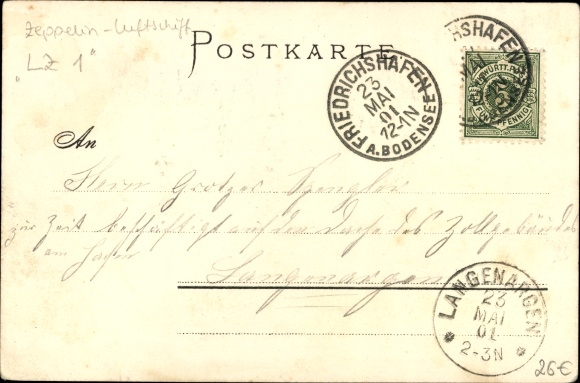 Zeppelin-Luftschiff
"LZ 1"
POSTKARTE
FRIEDRICHSHAFEN
23
MAI
01
12-1N
A. BODENSEE
SHAFEN
MAI
K. WÜRTT. POST
5
FÜNF PFENNIG
An
Herrn Spengler
zur Zeit beschäftigt auf dem Dache des Zollgebäudes
am Hafen
Langenargen
LANGENARGEN
23
MAI
01
2-3N
26€